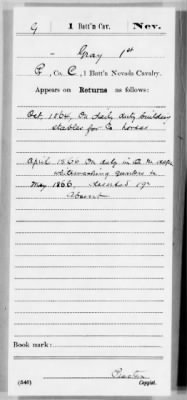 G 1 Batt'n Cav. Nev.
Gray 1st
P, Co. C, 1 Batt'n Nevada Cavalry.
Appears on Returns as follows:
Oct. 1864, On daily duty building
stables for Co horses
April 1866 On duty in Q. M. Dept
quarters
May 1866,
Absent
Book mark:
(546) Copyist.